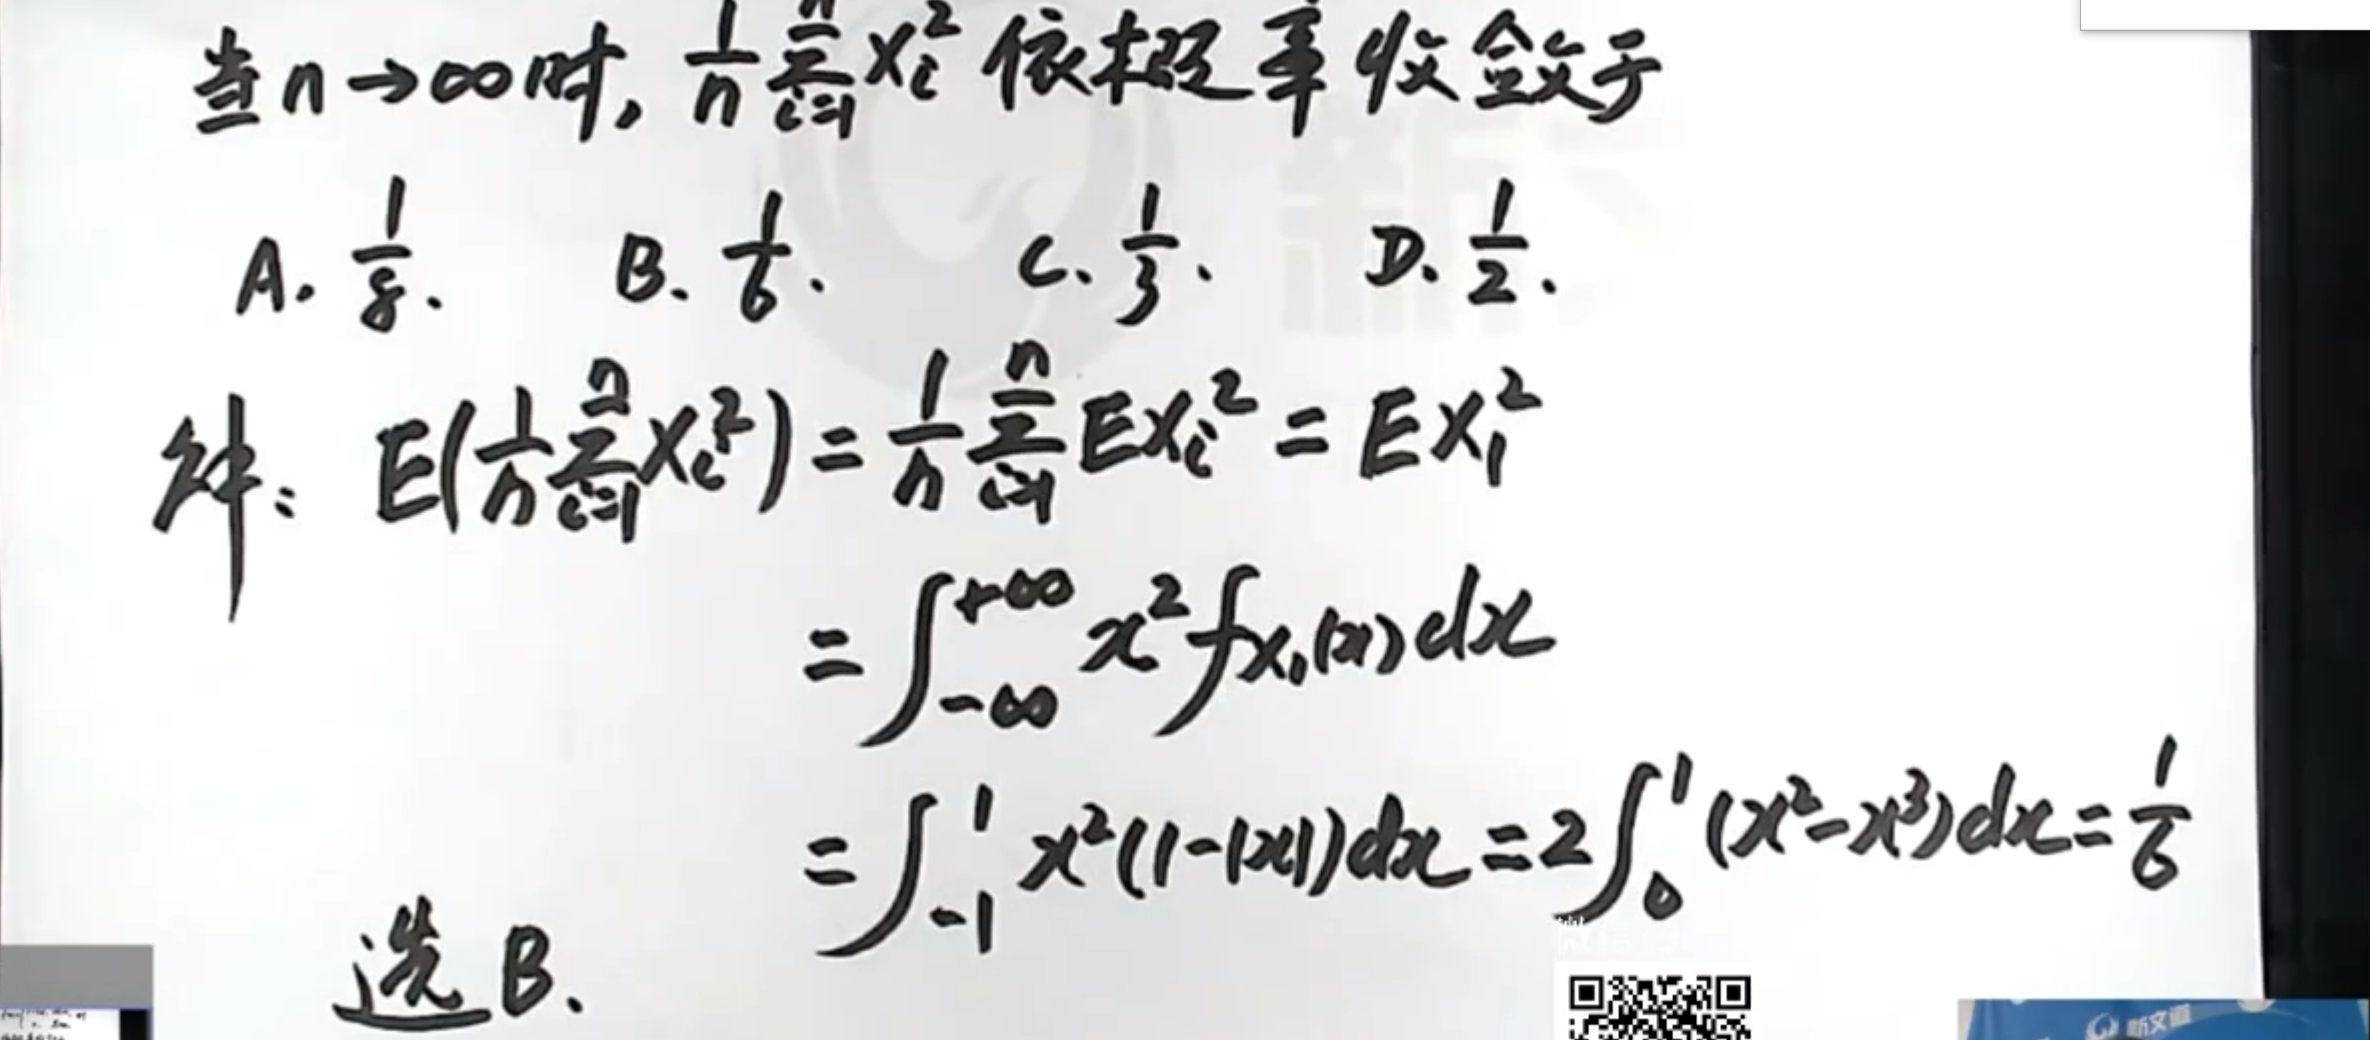 当n→∞时, 1/n ∑_{i=1}^{n} X_i^2 依概率收敛于
A. 1/8. B. 1/6. C. 1/3. D. 1/2.
解: E(1/n ∑_{i=1}^{n} X_i^2) = 1/n ∑_{i=1}^{n} EX_i^2 = EX_1^2
= ∫_{-∞}^{+∞} x^2 f_{X_1}(x) dx
= ∫_{-1}^{1} x^2(1-|x|)dx = 2∫_0^1 (x^2-x^3)dx = 1/6
选B.
微信
新文道